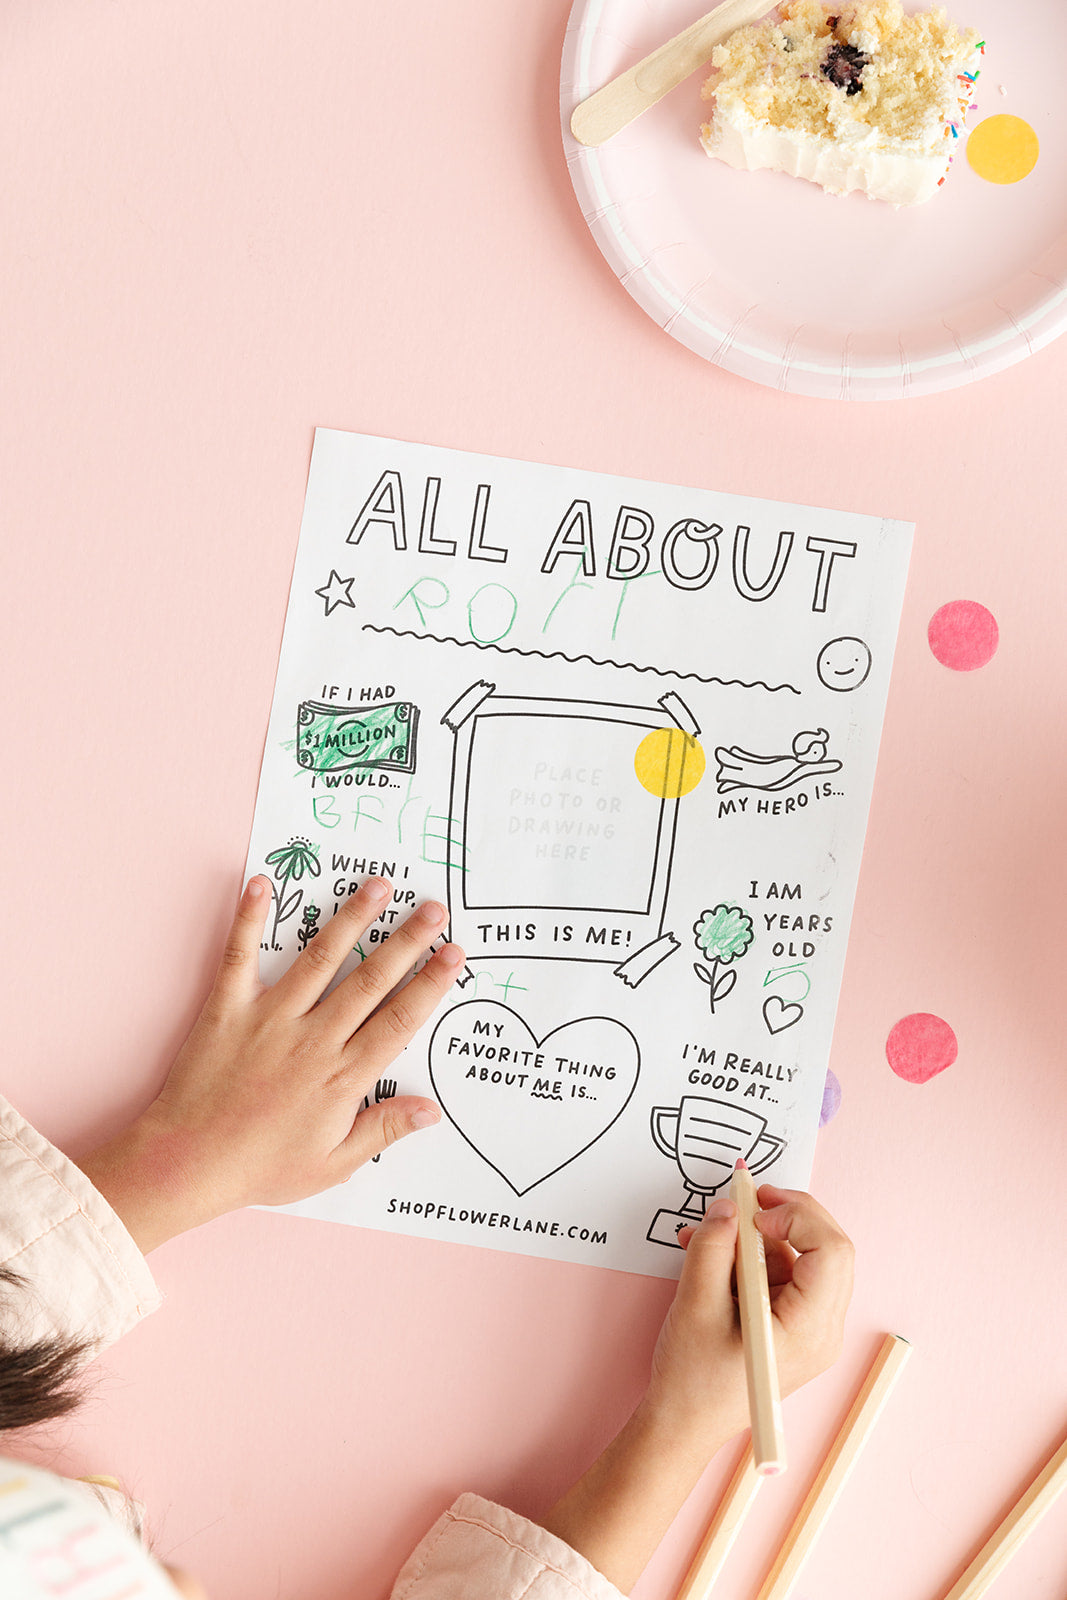 ALL ABOUT
RORY
IF I HAD
$1 MILLION
I WOULD...
MY HERO IS...
PLACE
PHOTO OR
DRAWING
HERE
THIS IS ME!
WHEN I
UP,
BE
I AM
YEARS
OLD
5
MY
FAVORITE THING
ABOUT ME IS...
I'M REALLY
GOOD AT...
SHOPFLOWERLANE.COM